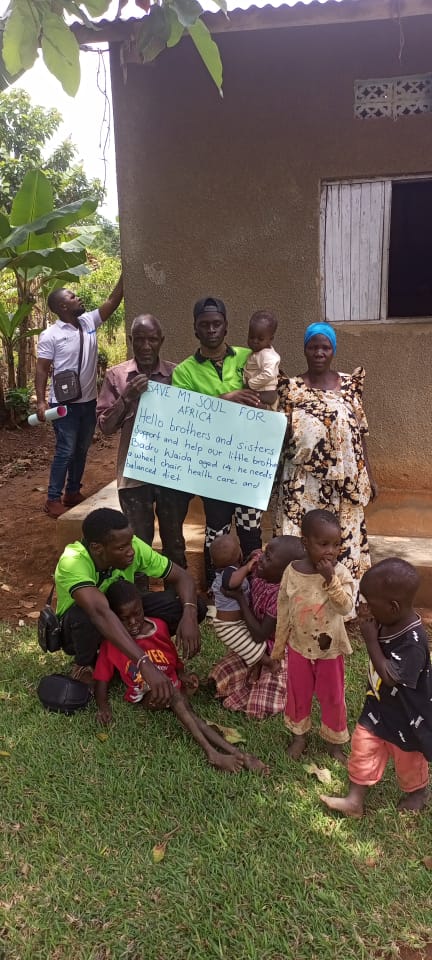 SAVE MY SOUL FOR
AFRICA
Hello brothers and sisters
Support and help our little brother
Badru Waida aged 14. he needs
a wheel chair, health care, and
balanced diet.